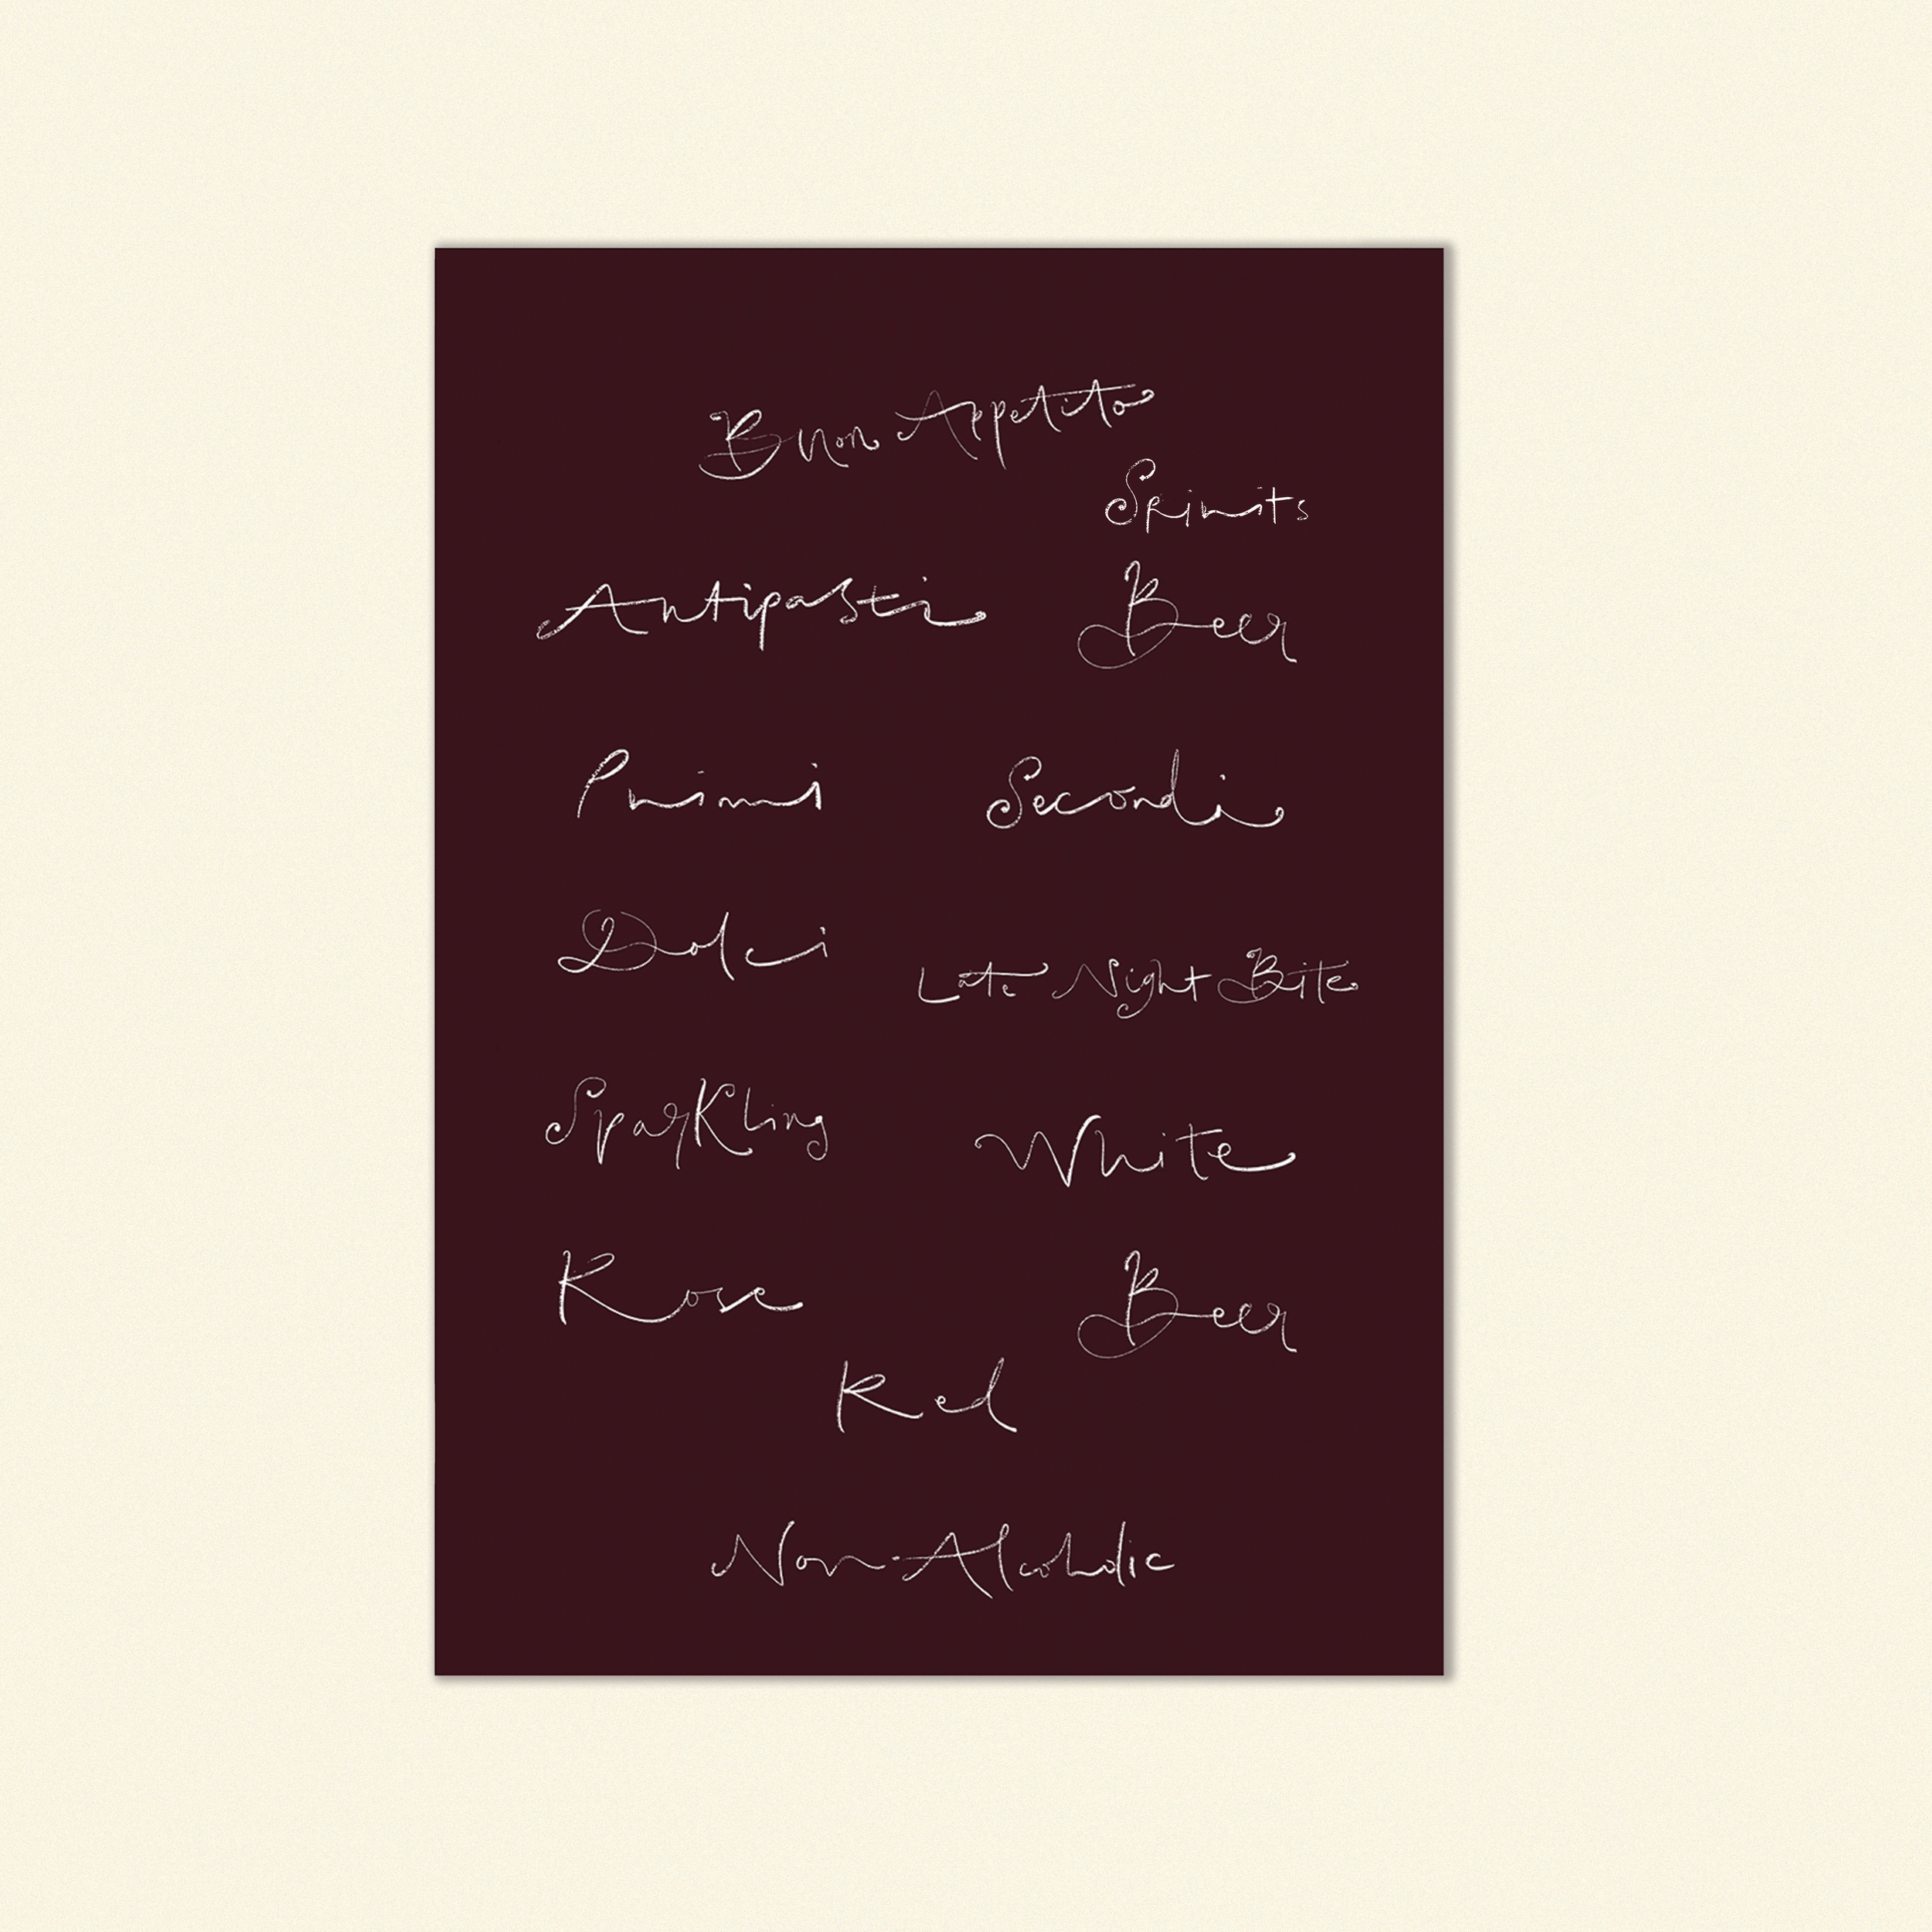 Buon Appetito
Spirits
Antipasti
Beer
Primi
Secondi
Dolci
Late Night Bite
Sparkling
White
Rose
Beer
Red
Non-Alcoholic